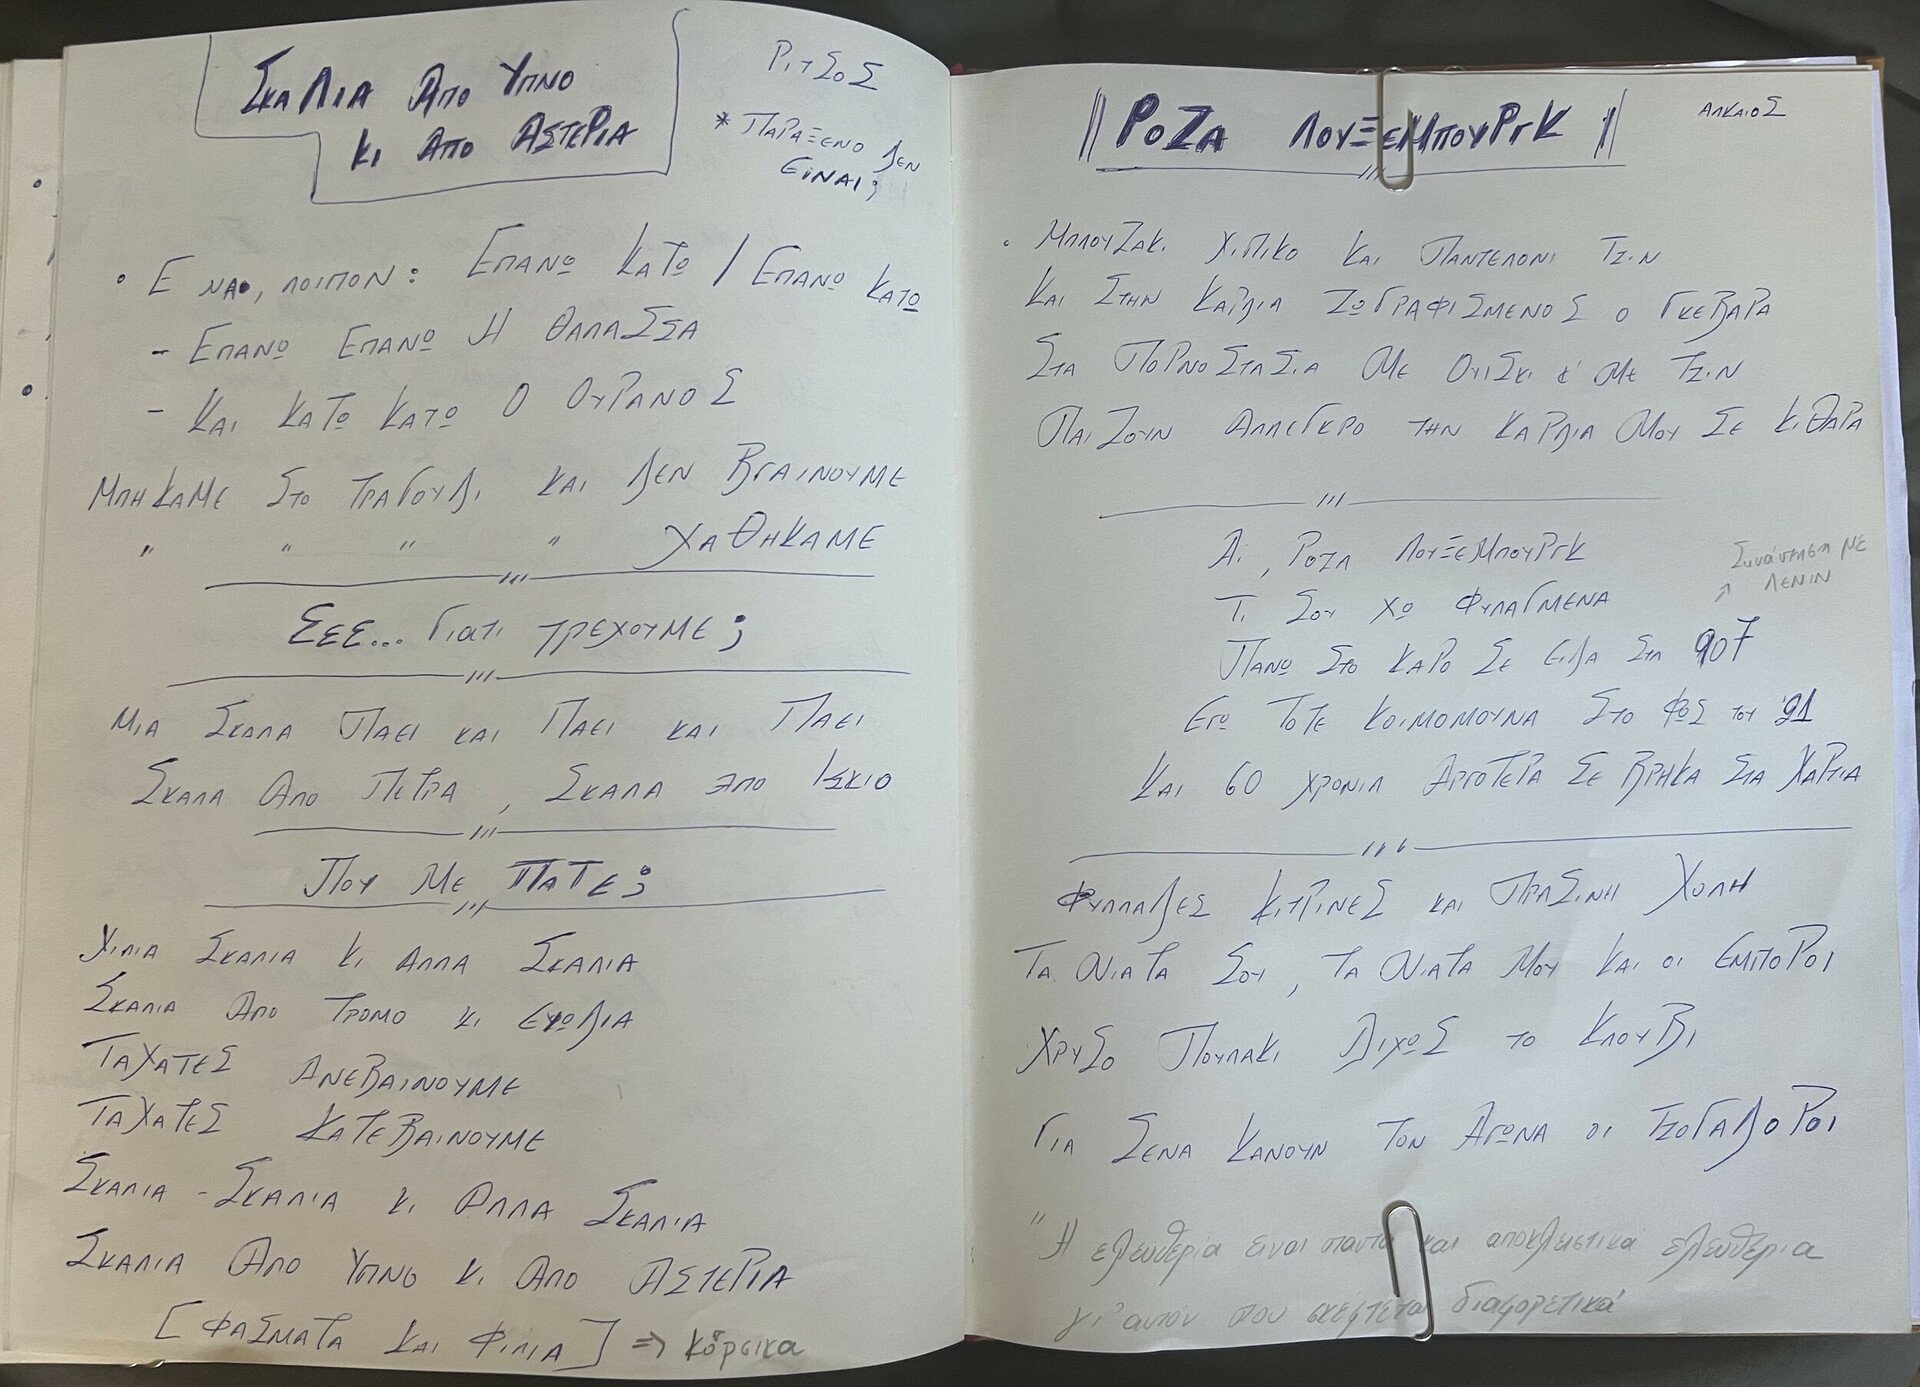 ΣΚΑΛΙΑ ΑΠΟ ΥΠΝΟ
ΚΙ ΑΠΟ ΑΣΤΕΡΙΑ
ΡΙΤΣΟΣ
* ΠΑΡΑΞΕΝΟ ΔΕΝ
ΕΙΝΑΙ;
• Ε ΝΑΙ, ΛΟΙΠΟΝ: ΕΠΑΝΩ ΚΑΤΩ / ΕΠΑΝΩ ΚΑΤΩ
- ΕΠΑΝΩ ΕΠΑΝΩ Η ΘΑΛΑΣΣΑ
- ΚΑΙ ΚΑΤΩ ΚΑΤΩ Ο ΟΥΡΑΝΟΣ
ΜΠΗΚΑΜΕ ΣΤΟ ΤΡΑΓΟΥΔΙ ΚΑΙ ΔΕΝ ΒΓΑΙΝΟΥΜΕ
" " " " ΧΑΘΗΚΑΜΕ
ΣΕΣ... ΓΙΑΤΙ ΤΡΕΧΟΥΜΕ;
ΜΙΑ ΣΚΑΛΑ ΠΑΕΙ ΚΑΙ ΠΑΕΙ ΚΑΙ ΠΑΕΙ
ΣΚΑΛΑ ΑΠΟ ΠΕΤΡΑ, ΣΚΑΛΑ ΑΠΟ ΙΣΚΙΟ
ΠΟΥ ΜΕ ΠΑΤΕ;
ΧΙΛΙΑ ΣΚΑΛΙΑ ΚΙ ΑΛΛΑ ΣΚΑΛΙΑ
ΣΚΑΛΙΑ ΑΠΟ ΤΡΟΜΟ ΚΙ ΕΥΩΔΙΑ
ΤΑΧΑΤΕΣ ΑΝΕΒΑΙΝΟΥΜΕ
ΤΑΧΑΤΕΣ ΚΑΤΕΒΑΙΝΟΥΜΕ
ΣΚΑΛΙΑ - ΣΚΑΛΙΑ ΚΙ ΑΛΛΑ ΣΚΑΛΙΑ
ΣΚΑΛΙΑ ΑΠΟ ΥΠΝΟ ΚΙ ΑΠΟ ΑΣΤΕΡΙΑ
[ΦΑΣΜΑΤΑ ΚΑΙ ΦΙΛΙΑ] => Κόρσικα
|| ΡΟΖΑ ΛΟΥΞΕΜΠΟΥΡΓΚ ||
ΑΛΚΑΙΟΣ
• ΜΠΛΟΥΖΑΚΙ ΧΙΠΙΚΟ ΚΑΙ ΠΑΝΤΕΛΟΝΙ ΤΖΙΝ
ΚΑΙ ΣΤΗΝ ΚΑΡΔΙΑ ΖΩΓΡΑΦΙΣΜΕΝΟΣ Ο ΓΚΕΒΑΡΑ
ΣΤΑ ΠΟΡΝΟΣΤΑΣΙΑ ΜΕ ΟΥΙΣΚΙ & ΜΕ ΤΖΙΝ
ΠΑΙΖΟΥΝ ΑΛΛΕΓΚΡΟ ΤΗΝ ΚΑΡΔΙΑ ΜΟΥ ΣΕ ΚΙΘΑΡΑ
ΑΙ, ΡΟΖΑ ΛΟΥΞΕΜΠΟΥΡΓΚ
Συνάντηση με
ΛΕΝΙΝ
ΤΙ ΣΟΥ ΧΩ ΦΥΛΑΓΜΕΝΑ
ΠΑΝΩ ΣΤΟ ΚΑΡΟ ΣΕ ΕΙΔΑ ΣΤΑ 907
ΕΓΩ ΤΟΤΕ ΚΟΙΜΟΜΟΥΝΑ ΣΤΟ ΦΩΣ ΤΟΥ '21
ΚΑΙ 60 ΧΡΟΝΙΑ ΑΡΓΟΤΕΡΑ ΣΕ ΒΡΗΚΑ ΣΤΑ ΧΑΡΤΙΑ
ΦΥΛΛΑΔΕΣ ΚΙΤΡΙΝΕΣ ΚΑΙ ΠΡΑΣΙΝΗ ΧΟΛΗ
ΤΑ ΝΙΑΤΑ ΣΟΥ, ΤΑ ΝΙΑΤΑ ΜΟΥ ΚΑΙ ΟΙ ΕΜΠΟΡΟΙ
ΧΡΥΣΟ ΠΟΥΛΑΚΙ ΔΙΧΩΣ ΤΟ ΚΛΟΥΒΙ
ΓΙΑ ΣΕΝΑ ΚΑΝΟΥΝ ΤΟΝ ΑΓΩΝΑ ΟΙ ΤΖΟΓΑΔΟΡΟΙ
"Η ελευθερία είναι πάντα και αποκλειστικά ελευθερία
γι' αυτόν που σκέφτεται διαφορετικά